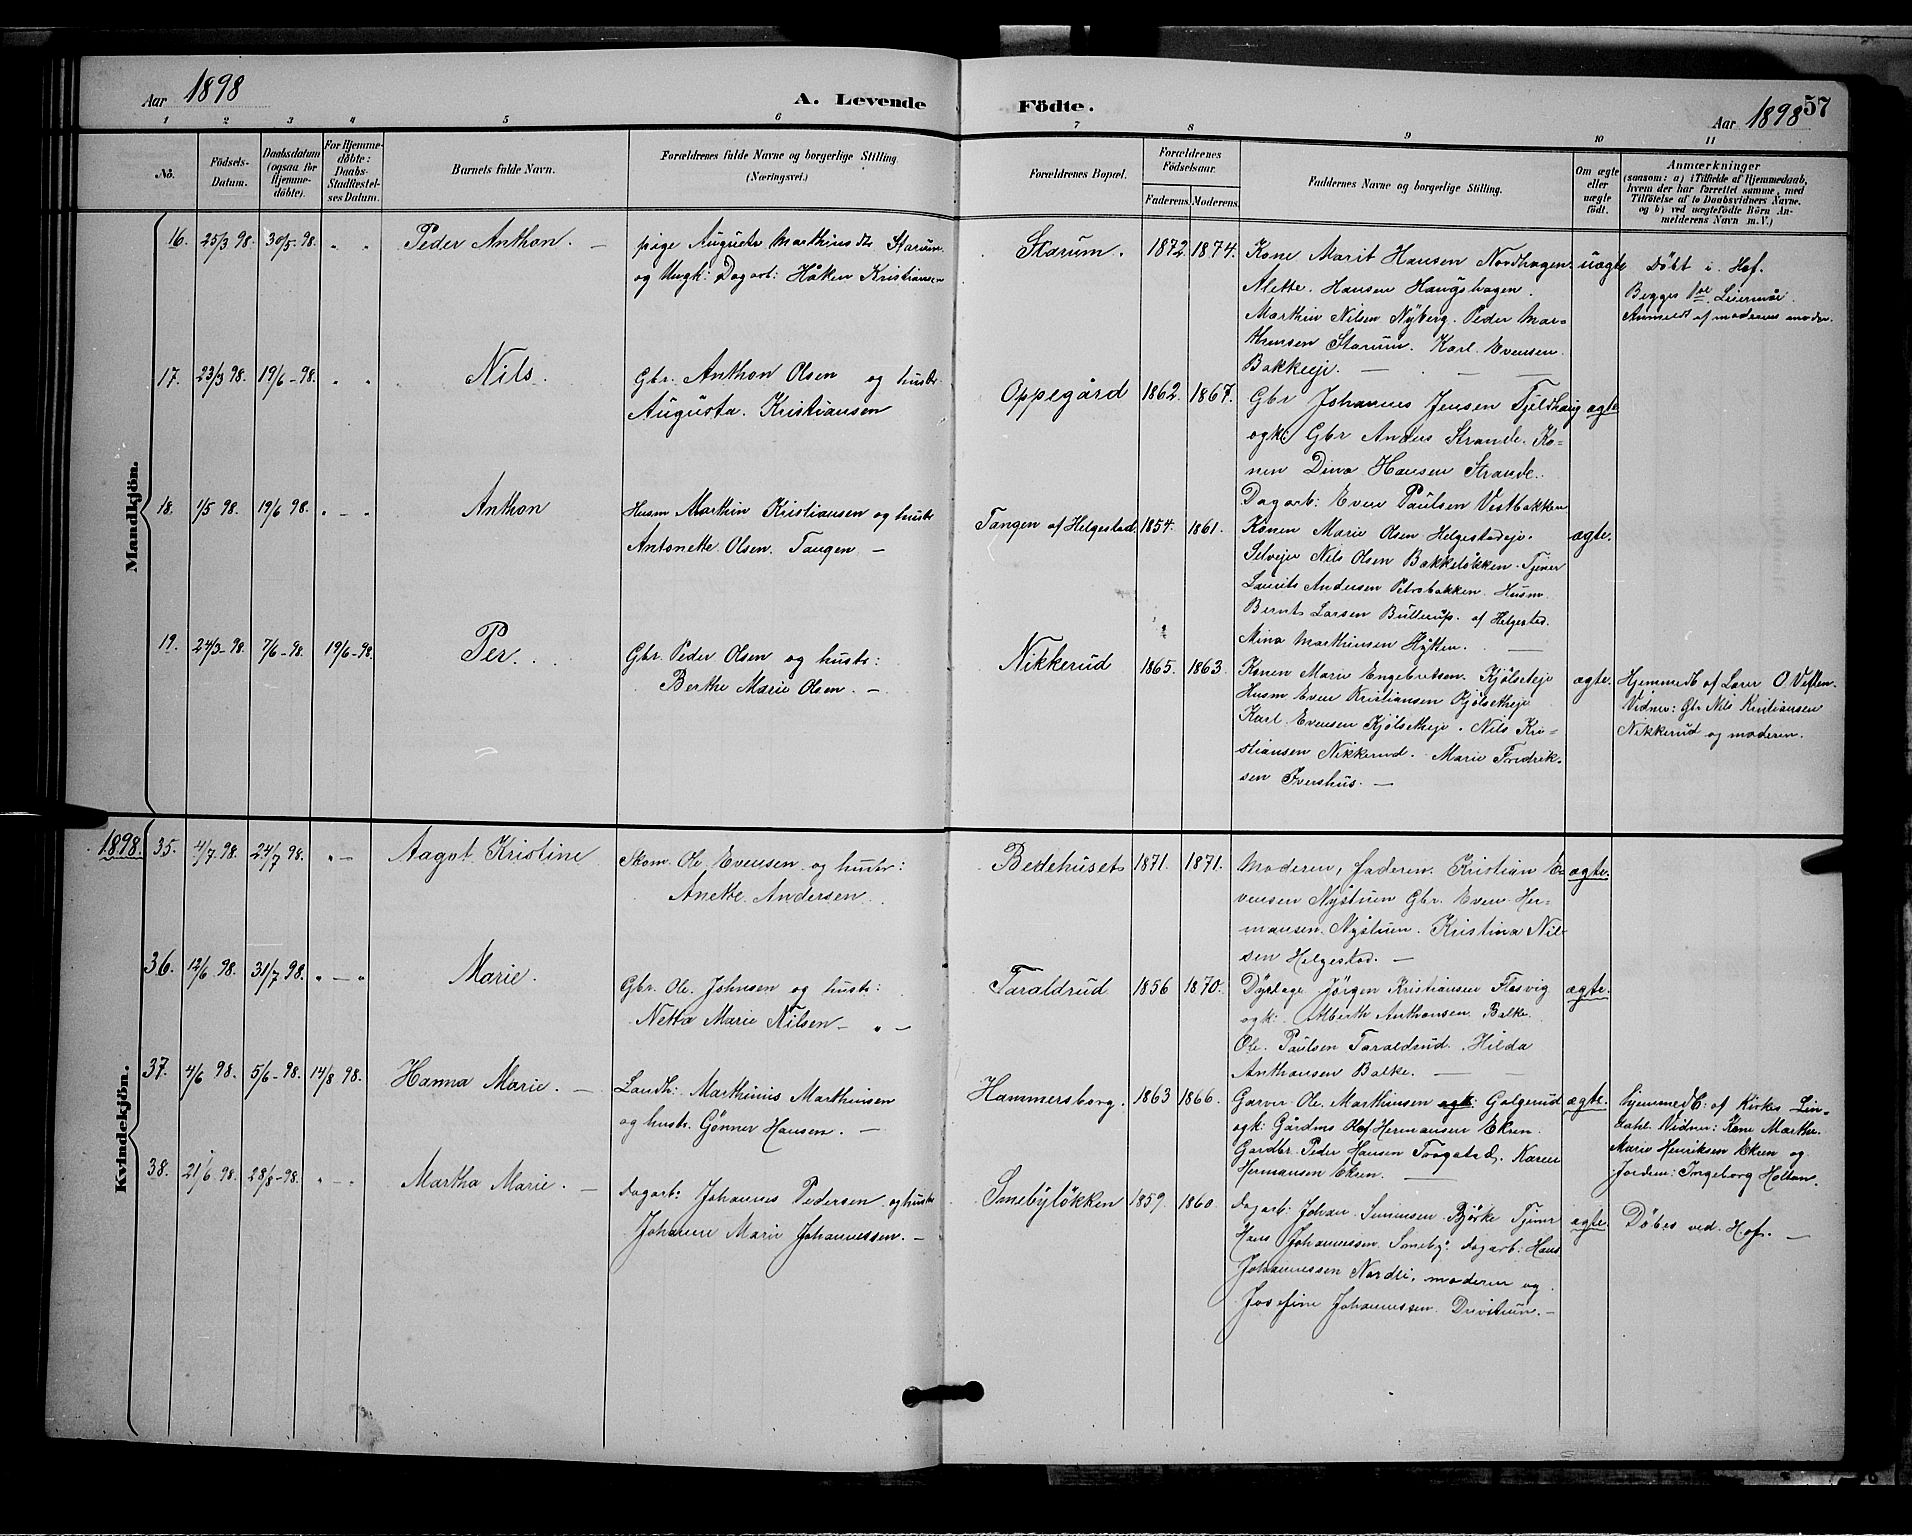 Aar 1898 A. Levende Födte. Aar 1898 57
1 2 3 4 5 6 7 8 9 10 11
No. Födsels-Datum. Daabsdatum (ogsaa for Hjemme-döbte). For Hjemme-döbte: Daabs-Stadfestel-ses Datum. Barnets fulde Navn. Forældrenes fulde Navne og borgerlige Stilling. (Næringsvei.) Forældrenes Bopæl. Forældrenes Födselsaar. Faderens. Moderens. Faddernes Navne og borgerlige Stilling. Om ægte eller uægte födt. Anmærkninger (saasom: a) i Tilfælde af Hjemmedaab, hvem der har forrettet samme, med Tilföielse af to Daabsvidners Navne, og b) ved uægtefödte Börn An-melderens Navn m.V.)
Mandkjön.
16. 25/3 98. 30/5-98. " " Peder Anthon. — pige Augusta Marthinsdtr Starum
og Ungk: Dagarb: Håken Kristiansen
Starum. 1872. 1874.
Kone Marit Hansen Nordhagen.
Alette Hansen Haugshagen.
Marthin Nilsen Nyberg. Peder Mar-
thinsen Starum. Karl Evensen
Bakkeeje. —
uægte
Döbt i Hof.
Begges 1ste Leiermål.
Anmeldt af moderens moder.
17. 23/3 98. 19/6-98. " " Nils. Gbr. Anthon Olsen og hustr.
Augusta Kristiansen
Oppegård 1862. 1867.
Gbr Johannes Jensen Fjeldhaug
ogk: Gbr Anders Strande. Ko-
nen Dina Hansen Strande.
Dagarb: Even Paulsen Vestbakken
ægte
18. 1/5 98. 19/6 98. " - " Anthon Husm Marthin Kristiansen og hustr
Antonette Olsen. Tangen —
Tangen af Helgestad. 1854. 1861.
Konen Marie Olsen Helgestadeje.
Selvejer Nils Olsen Bakkeløkken. Tjener
Laurits Andersen Petrobakken. Husm
Bernt Larsen Bullerup. af Helgestad.
Mina Marthinsen Hytten. —
ægte.
19. 24/3-98. 7/6-98. 19/6-98. Per. Gbr. Peder Olsen og hustr:
Berthe Marie Olsen. —
Nikkerud 1865. 1863.
Konen Marie Engebretsen. Kjölseteje
Husm Even Kristiansen Kjölsetheje
Karl Evensen Kjölsetheje. Nils Kri-
stiansen Nikkerud. Marie Fredrik-
sen Ivershus. —
ægte.
Hjemmedt af Lærer O. Veflen.
Vidner: Gbr Nils Kristiansen
Nikkerud og moderen.
Kvindekjön.
1898. 35. 4/7 98. 24/7 98. " — Aagot Kristine Skom. Ole Evensen og hustr:
Anette Andersen.
Bedehuset 1871. 1871.
Moderen, faderen. Kristian E-
vensen Nystuen Gbr. Even Her-
mansen. Nystuen. Kristina Nil-
sen Helgestad. —
ægte.
36. 12/6 98. 31/7 98. " — " Marie. Gbr. Ole Johnsen og hustr:
Netta Marie Nilsen — " —
Taraldrud 1856 1870.
Dyrlæge Jörgen Kristiansen
ogk: Alberth Anthonsen Balke
Ole Paulsen Taraldrud. Hilda
Anthonsen Balke. —
ægte.
37. 4/6 98. 5/6-98. 14/8 98. Hanna Marie. — Landh: Marthinus Marthinsen
og hustr. Gönner Hansen. —
Hammersborg. 1863 1866.
Garver Ole Marthinsen ogk: Galgerud
ogk: Gårdms Olof Hermansen Eken.
Gardbr. Peder Hansen Karen
Hermansen Eken. —
ægte.
hjemmedt: af Kirkes. Lin-
dahl. Vidner: Kone Marthe
Marie Henriksen Eken og
Jordem: Ingeborg Holtan.
38. 21/6 98. 28/8-98. " - " Martha Marie. — dagarb: Johannes Pedersen og hustr
Johanne Marie Johannessen. —
Smebyløkken 1859. 1860.
dagarb: Johan Simensen Björke Tjener
Hans Johannessen Smeby. dagarb: Hans
Johannessen Nordli, moderen og
Josefine Johannessen —
ægte
Döbt ved Hof. —